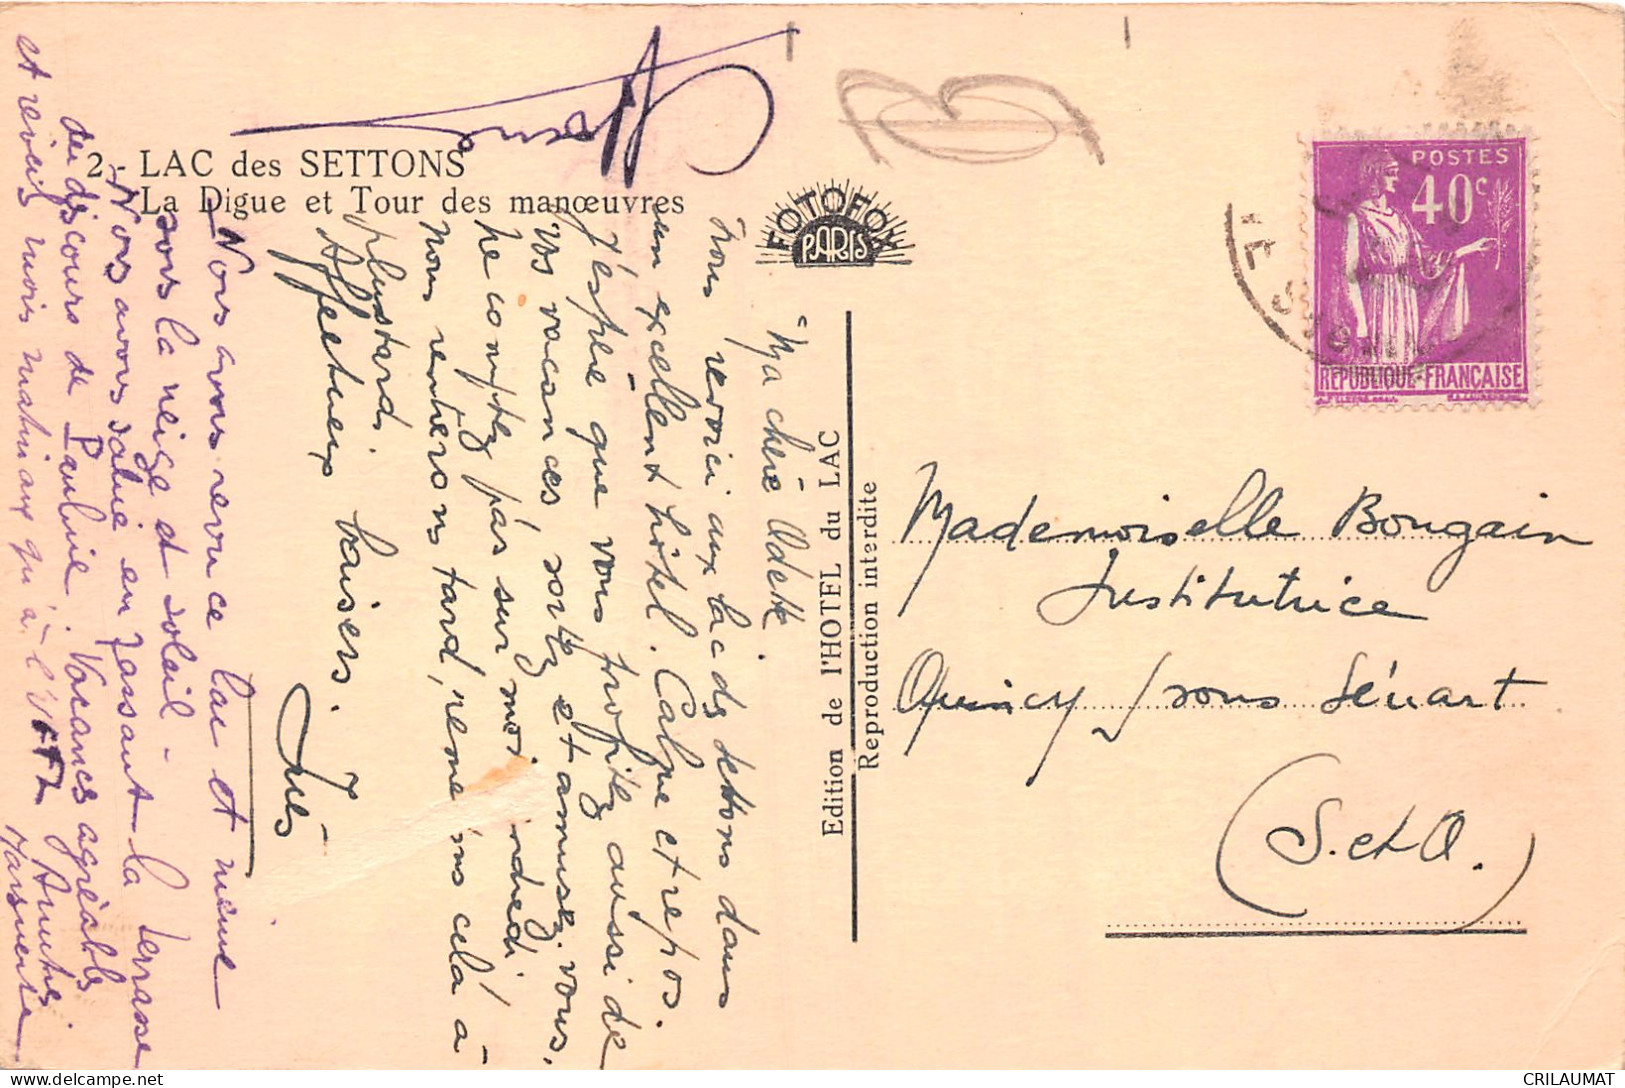 2.- LAC des SETTONS
La Digue et Tour des manœuvres
FOTOFOX
PARIS
Edition de l'HOTEL du LAC
Reproduction interdite
POSTES
40c
REPUBLIQUE-FRANÇAISE
Ma chère Odette
Nous revoici aux lac des settons dans
un excellent hôtel. Calme et repos.
J'espère que vous profitez aussi de
vos vacances, sortez et amusez-vous,
Ne comptez pas sur moi
nous rentrerons tard, remettons cela à
plus tard.
Affectueux baisers.
Nous avons revu ce lac et même
sous la neige et soleil -
Nous avons salué en passant la terrasse
des discours de Pauline. Vacances agréables
et réveils moins matinaux qu'à l'
Amitiés
Mademoiselle Bougain
Institutrice
Quincy sous Sénart
(S. et O.)
CRILAUMAT